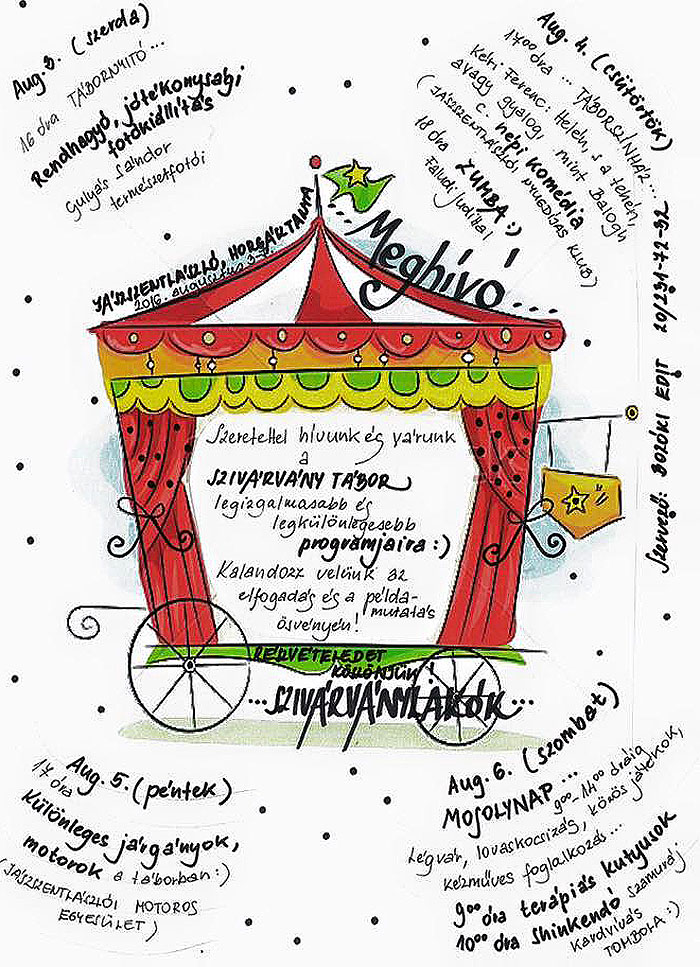 Aug. 3. (szerda)
16 óra TÁBORNYITÓ...
Rendhagyó, jótékonysági
fotókiállítás
Gulyás Sándor
természetfotói
Aug. 4. (csütörtök)
17⁰⁰ óra ... TÁBORSZÍNHÁZ...
Kéri Ferenc: Helén, s a tehén,
avagy gyalog, mint Balogh
c. népi komédia
(JÁSZSZENTLÁSZLÓI NYUGDÍJAS KLUB)
18 óra ZUMBA :)
Faludi Judittal
JÁSZSZENTLÁSZLÓ, HORGÁRTANYA
2016. augusztus 3-7.
...Meghívó...
Szeretettel hívunk és várunk
a
SZIVÁRVÁNY TÁBOR
legizgalmasabb és
legkülönlegesebb
programjaira :)
Kalandozz velünk az
elfogadás és a példa-
mutatás
ösvényén!
RÉSZVÉTELEDET
KÖSZÖNJÜK!
...SZIVÁRVÁNYLAKÓK...
Szervező: BOZÓKI EDIT 20/231-72-92
Aug. 5. (péntek)
17 óra
Különleges járgányok,
motorok a táborban :)
(JÁSZSZENTLÁSZLÓI MOTOROS
EGYESÜLET)
Aug. 6. (szombat)
MOSOLYNAP...
9⁰⁰-14⁰⁰ óráig
Légvár, lovaskocsizás, körös játékok,
kézműves foglalkozás...
9⁰⁰ óra terápiás kutyusok
10⁰⁰ óra Shinkendó szamuráj
kardvívás
TOMBOLA :)